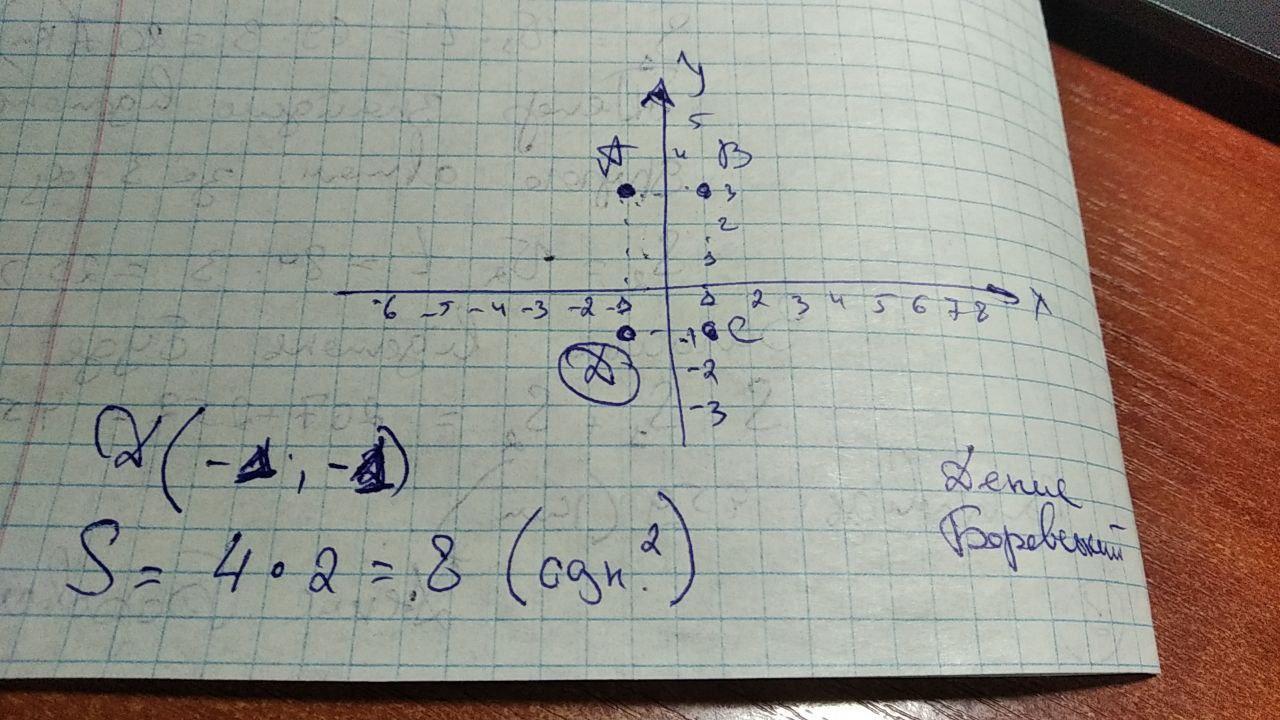 У
5
А 4 В
3
2
1
-6 -5 -4 -3 -2 -1 1 2 3 4 5 6 7 8 Х
-1 С
Д -2
-3
Д(-1; -1)
S = 4 · 2 = 8 (одн.²)
Денис
Боревський